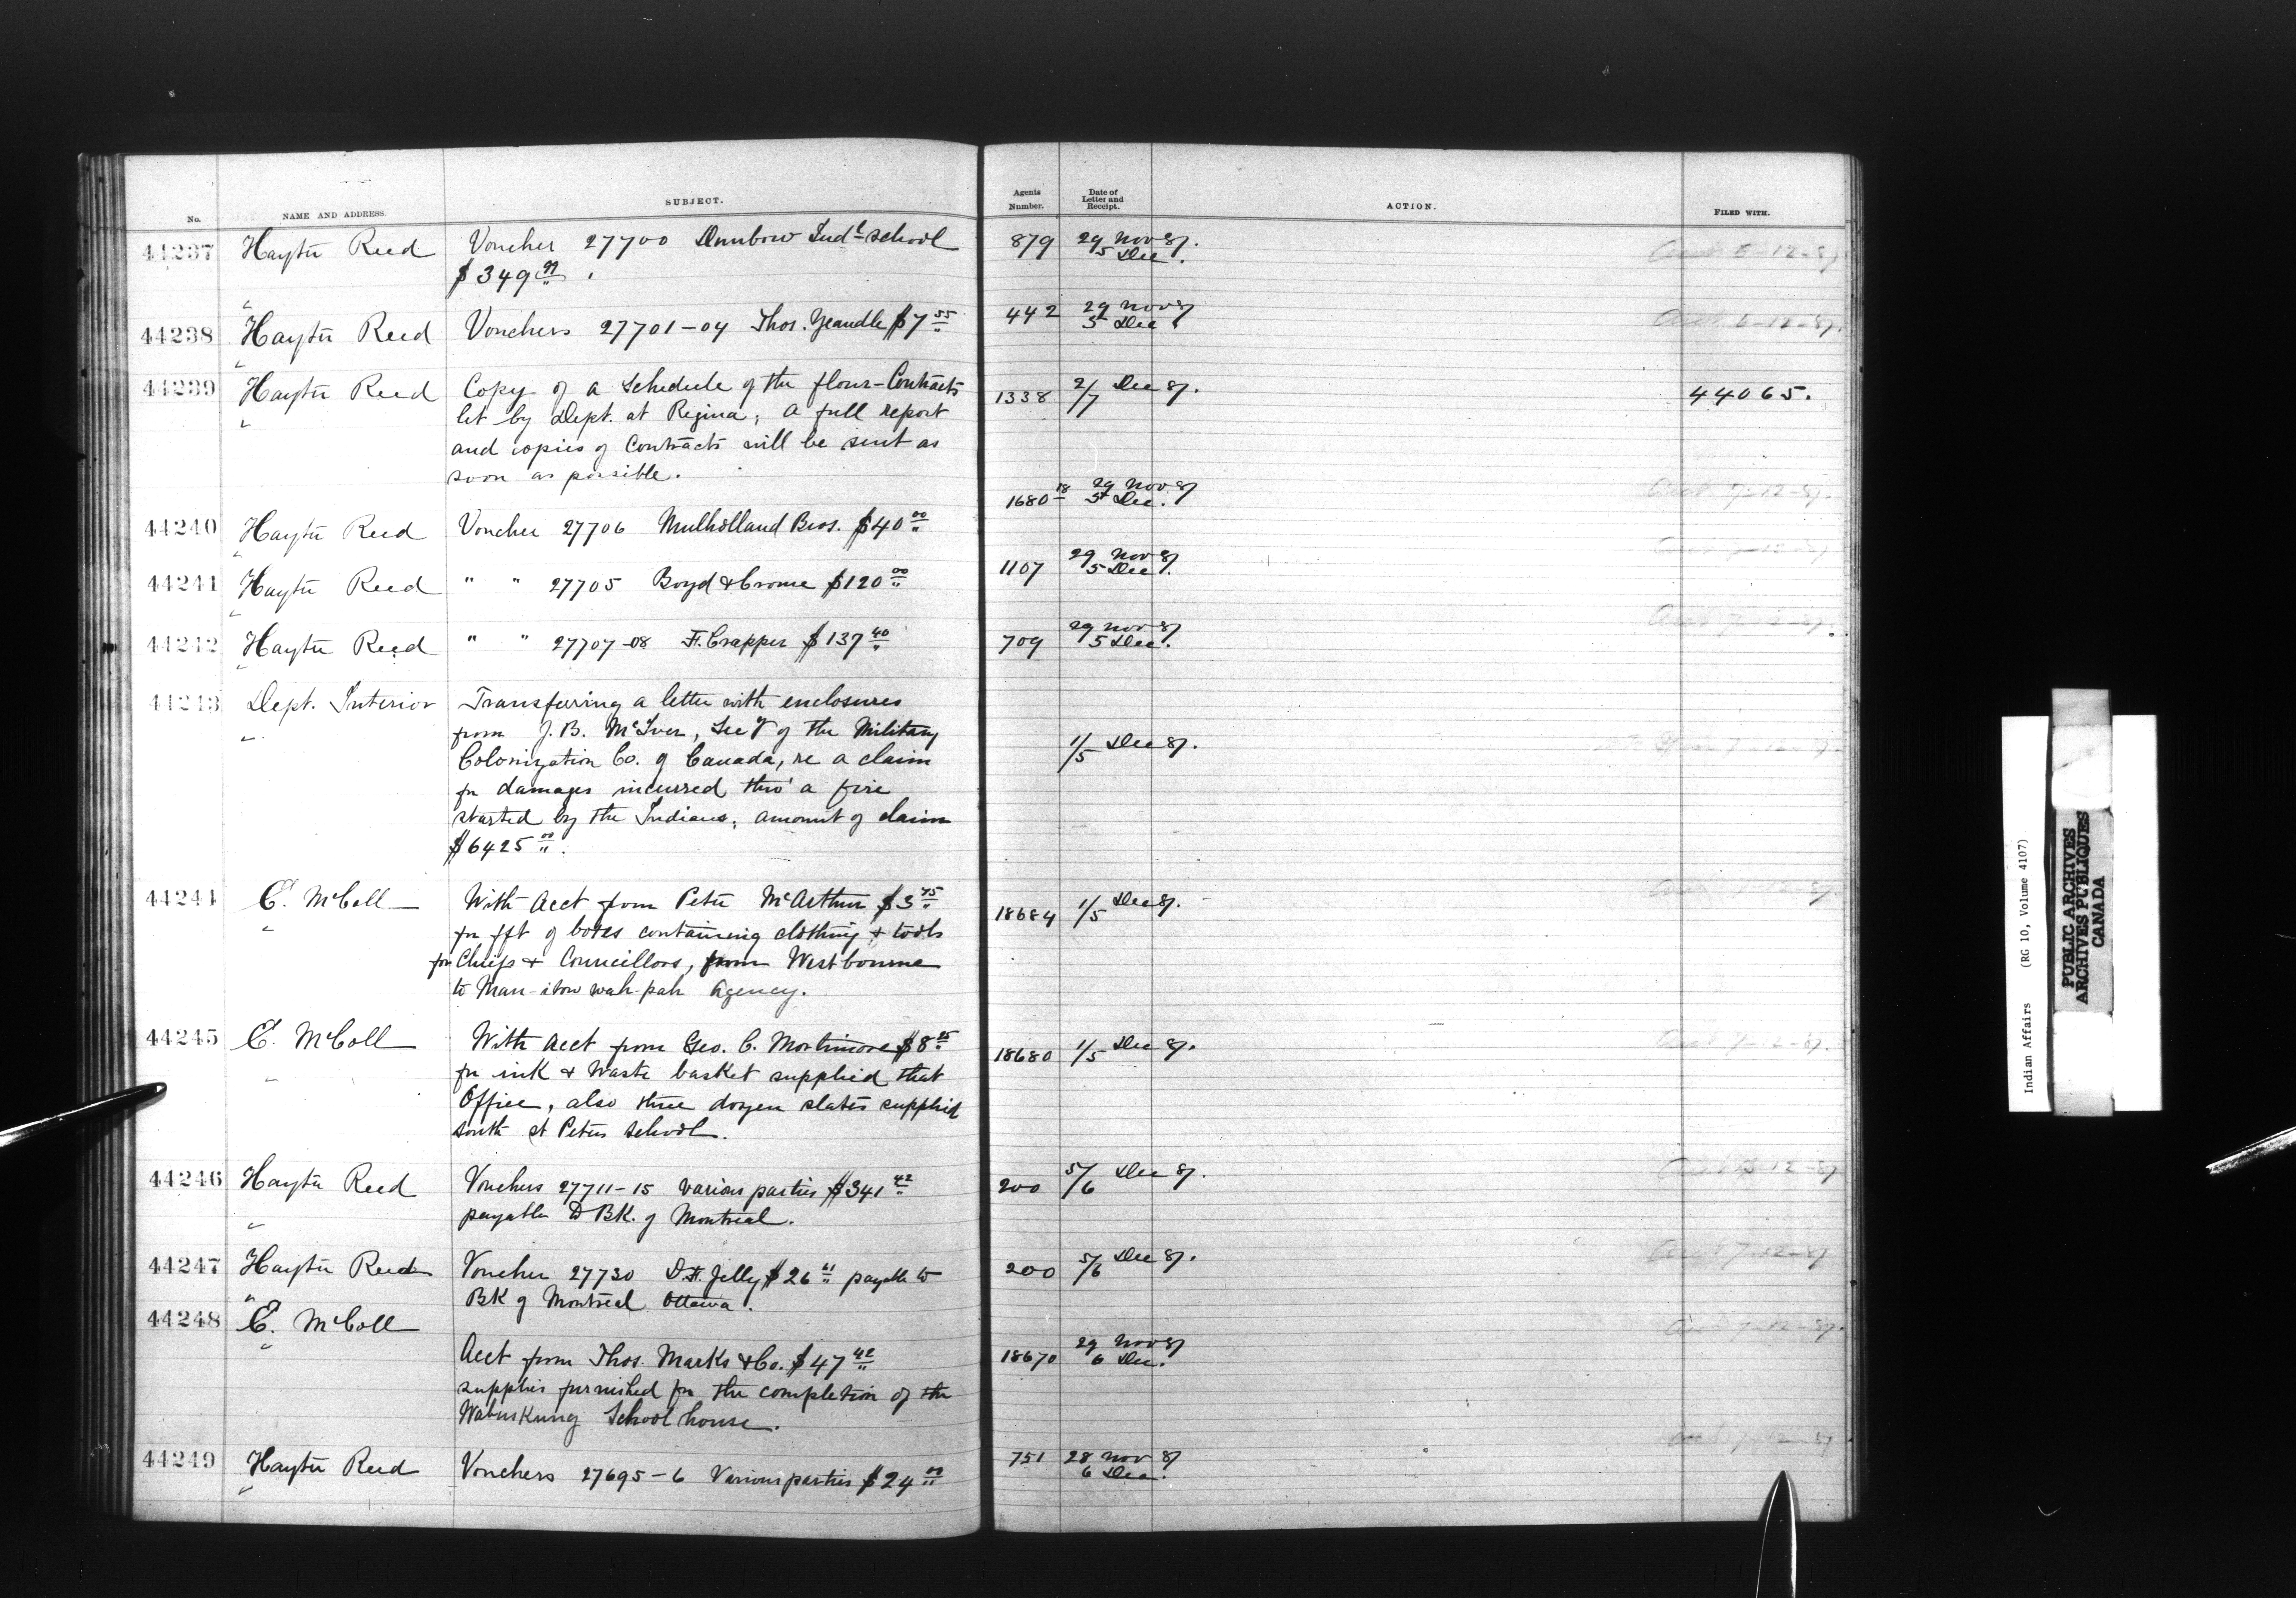 No. NAME AND ADDRESS. SUBJECT. Agents Number. Date of Letter and Receipt. ACTION. FILED WITH.
44237 Hayter Reed Voucher 27700 Dunbow Indl School 879 29 Nov 87.
$349 5 Dec.
44238 Hayter Reed Vouchers 27701-04 Thos. Yeandle $7 55 442 29 Nov 87
5 Dec
44239 Hayter Reed Copy of a Schedule of the flour-Contracts 1338 2/7 Dec 87. 44065.
let by Dept. at Regina; a full report
and copies of Contracts will be sent as
soon as possible.
44240 Hayter Reed Voucher 27706 Mulholland Bros. $40 00 1680 18 29 Nov 87
5 Dec.
44241 Hayter Reed " " 27705 Boyd & Crowe $120 00 1107 29 Nov 87
5 Dec.
44242 Hayter Reed " " 27707-08 F. Crapper $137 40 709 29 Nov 87
5 Dec.
44243 Dept. Interior Transferring a letter with enclosures
from J. B. McIver, Secy of the Military 1/5 Dec 87.
Colonization Co. of Canada, re a claim
for damages incurred thro' a fire
started by the Indians; amount of claim
$6425 00.
44244 E. McColl With Acct from Peter McArthur $3 45 18684 1/5 Dec 87.
for fft of boxes containing clothing & tools
for Chiefs & Councillors, from Westbourne
to Man-itow wah-pah Agency.
44245 E. McColl With Acct from Geo. C. Mortimore $8 18680 1/5 Dec 87.
for ink & Waste basket supplied that
Office, also three dozen slates supplied
South St Peters School.
44246 Hayter Reed Vouchers 27711-15 various parties $341 42 200 5/6 Dec 87.
payable to BK. of Montreal.
44247 Hayter Reed Voucher 27730 D. H. Jelly $26 payable to 200 5/6 Dec 87.
BK of Montreal Ottawa.
44248 E. McColl
Acct from Thos. Marks & Co. $47 42 18670 29 Nov 87
6 Dec.
supplies furnished for the completion of the
Wabuskung School house.
44249 Hayter Reed Vouchers 27695-6 Various parties $24 00 751 28 Nov 87
6 Dec.
Indian Affairs (RG 10, Volume 4107)
PUBLIC ARCHIVES
ARCHIVES PUBLIQUES
CANADA